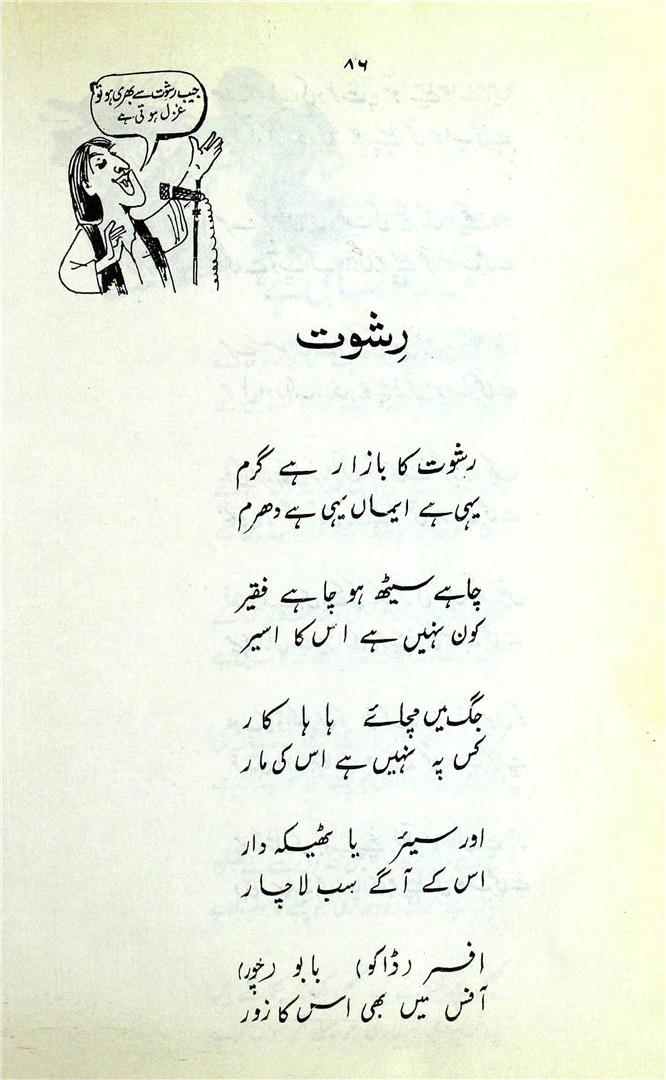 ۸۶
جیب رشوت سے بھری ہو تو
غزل ہوتی ہے
رِشوت
رشوت کا بازار ہے گرم
یہی ہے ایماں یہی ہے دھرم
چاہے سیٹھ ہو چاہے فقیر
کون نہیں ہے اس کا اسیر
جگ میں مچائے ہاہا کار
کس پہ نہیں ہے اس کی مار
اورسیئر یا ٹھیکہ دار
اس کے آگے سب لاچار
افسر (ڈاکو) بابو (چور)
آفس میں بھی اس کا زور